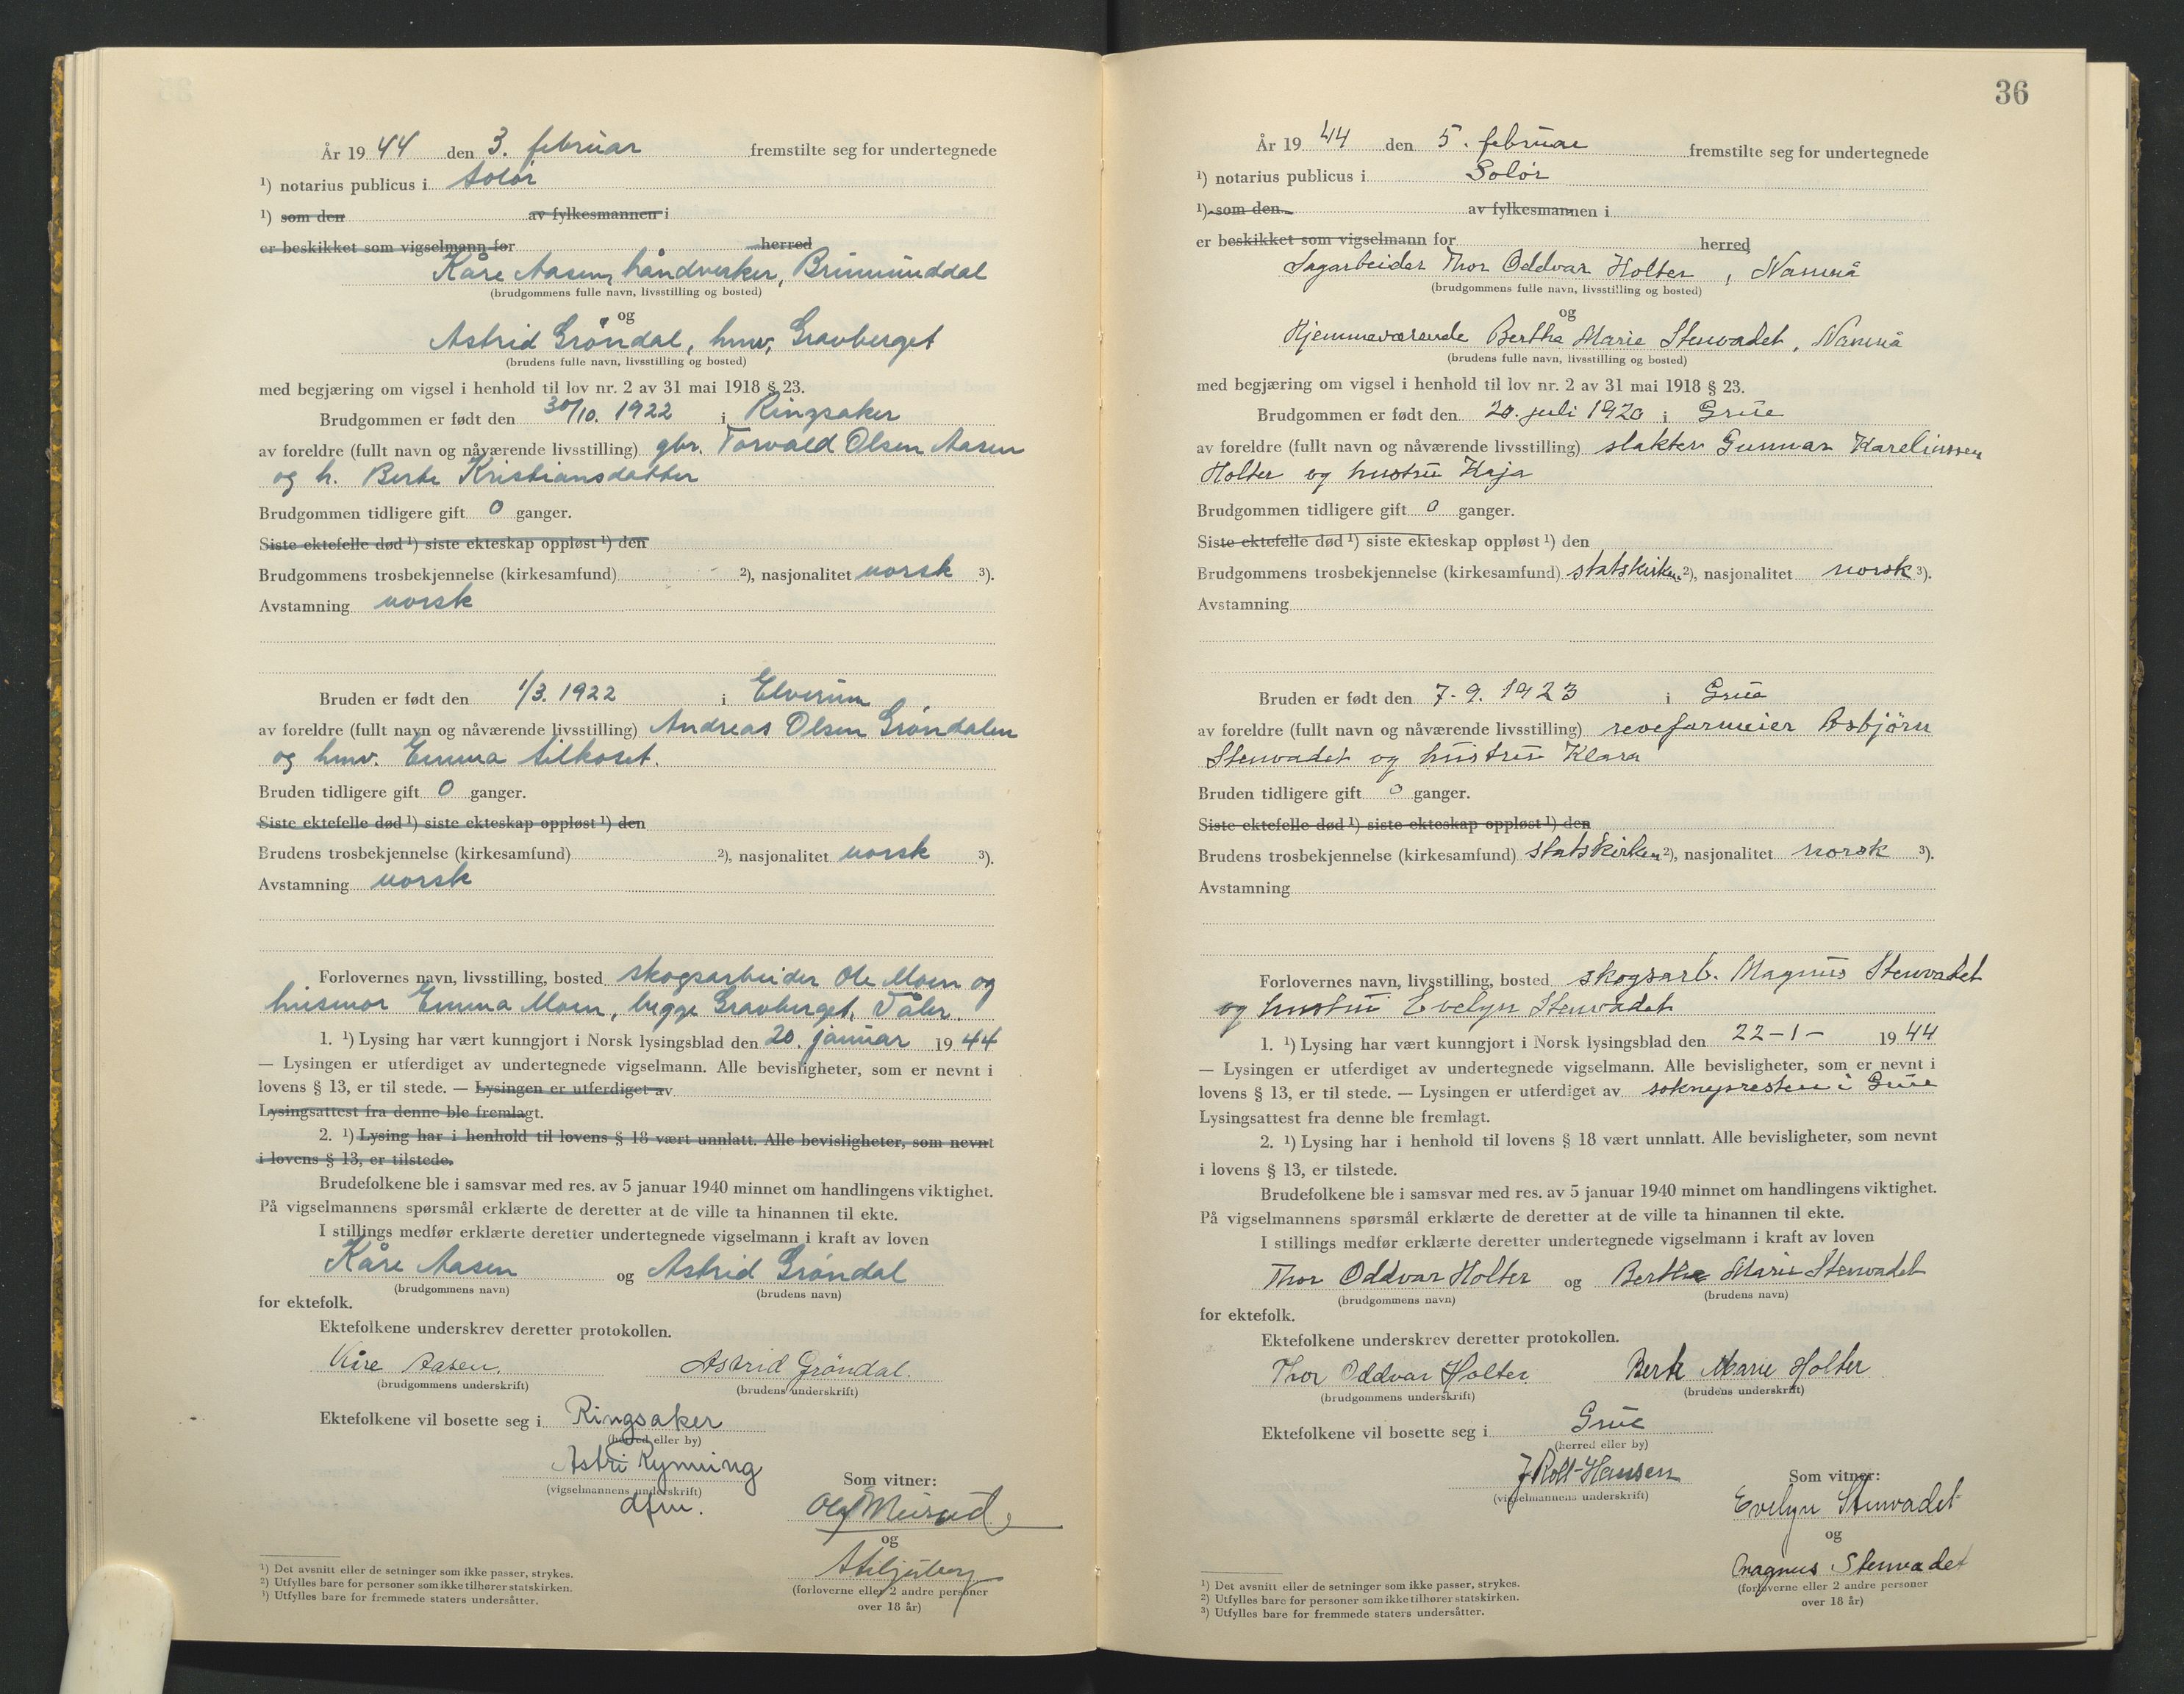 År 19 44 den 3. februar fremstilte seg for undertegnede
¹) notarius publicus i Solør
¹) som den av fylkesmannen i
er beskikket som vigselmann for herred
Kåre Aasen, håndverker, Brummunddal
(brudgommens fulle navn, livsstilling og bosted)
og
Astrid Grøndal, hmv, Gravberget
(brudens fulle navn, livsstilling og bosted)
med begjæring om vigsel i henhold til lov nr. 2 av 31 mai 1918 § 23.
Brudgommen er født den 30/10. 1922 i Ringsaker
av foreldre (fullt navn og nåværende livsstilling) gbr. Torvald Olsen Aasen
og h. Berte Kristiansdatter
Brudgommen tidligere gift 0 ganger.
Siste ektefelle død ¹) siste ekteskap oppløst ¹) den
Brudgommens trosbekjennelse (kirkesamfund) ²), nasjonalitet norsk ³).
Avstamning norsk
Bruden er født den 1/3. 1922 i Elverum
av foreldre (fullt navn og nåværende livsstilling) Andreas Olsen Grøndalen
og hmv. Emma
Bruden tidligere gift 0 ganger.
Siste ektefelle død ¹) siste ekteskap oppløst ¹) den
Brudens trosbekjennelse (kirkesamfund) ²), nasjonalitet norsk ³).
Avstamning norsk
Forlovernes navn, livsstilling, bosted skogsarbeider Ole Moen og
husmor Emma Moen, begge Gravberget, Våler.
1. ¹) Lysing har vært kunngjort i Norsk lysingsblad den 20. januar 19 44
— Lysingen er utferdiget av undertegnede vigselmann. Alle bevisligheter, som er nevnt i
lovens § 13, er til stede. — Lysingen er utferdiget av
Lysingsattest fra denne ble fremlagt.
2. ¹) Lysing har i henhold til lovens § 18 vært unnlatt. Alle bevisligheter, som nevnt
i lovens § 13, er tilstede.
Brudefolkene ble i samsvar med res. av 5 januar 1940 minnet om handlingens viktighet.
På vigselmannens spørsmål erklærte de deretter at de ville ta hinannen til ekte.
I stillings medfør erklærte deretter undertegnede vigselmann i kraft av loven
Kåre Aasen og Astrid Grøndal
(brudgommens navn) (brudens navn)
for ektefolk.
Ektefolkene underskrev deretter protokollen.
Kåre Aasen. Astrid Grøndal.
(brudgommens underskrift) (brudens underskrift)
Ektefolkene vil bosette seg i Ringsaker
(herred eller by)
Astri Rynning
(vigselmannens underskrift)
dfm.
Som vitner:
Olaf
og
(forloverne eller 2 andre personer
over 18 år)
¹) Det avsnitt eller de setninger som ikke passer, strykes.
²) Utfylles bare for personer som ikke tilhører statskirken.
³) Utfylles bare for fremmede staters undersåtter.
36
År 19 44 den 5. februar fremstilte seg for undertegnede
¹) notarius publicus i Solør
¹) som den av fylkesmannen i
er beskikket som vigselmann for herred
Sagarbeider Thor Oddvar Holter, Namnå
(brudgommens fulle navn, livsstilling og bosted)
og
Hjemmeværende Bertha Marie Stenvadet, Namnå
(brudens fulle navn, livsstilling og bosted)
med begjæring om vigsel i henhold til lov nr. 2 av 31 mai 1918 § 23.
Brudgommen er født den 20. juli 1920 i Grue
av foreldre (fullt navn og nåværende livsstilling) slakter Gunnar Karelinssen
Holter og hustru Kaja
Brudgommen tidligere gift 0 ganger.
Siste ektefelle død ¹) siste ekteskap oppløst ¹) den
Brudgommens trosbekjennelse (kirkesamfund) statskirken ²), nasjonalitet norsk ³).
Avstamning
Bruden er født den 7.9. 1923 i Grue
av foreldre (fullt navn og nåværende livsstilling) revefarmeier Asbjørn
Stenvadet og hustru Klara
Bruden tidligere gift 0 ganger.
Siste ektefelle død ¹) siste ekteskap oppløst ¹) den
Brudens trosbekjennelse (kirkesamfund) statskirken ²), nasjonalitet norsk ³).
Avstamning
Forlovernes navn, livsstilling, bosted skogsarb. Magnus Stenvadet
og hustru Evelyn Stenvadet
1. ¹) Lysing har vært kunngjort i Norsk lysingsblad den 22-1- 19 44
— Lysingen er utferdiget av undertegnede vigselmann. Alle bevisligheter, som er nevnt i
lovens § 13, er til stede. — Lysingen er utferdiget av soknepresten i Grue
Lysingsattest fra denne ble fremlagt.
2. ¹) Lysing har i henhold til lovens § 18 vært unnlatt. Alle bevisligheter, som nevnt
i lovens § 13, er tilstede.
Brudefolkene ble i samsvar med res. av 5 januar 1940 minnet om handlingens viktighet.
På vigselmannens spørsmål erklærte de deretter at de ville ta hinannen til ekte.
I stillings medfør erklærte deretter undertegnede vigselmann i kraft av loven
Thor Oddvar Holter og Bertha Marie Stenvadet
(brudgommens navn) (brudens navn)
for ektefolk.
Ektefolkene underskrev deretter protokollen.
Thor Oddvar Holter Berte Marie Holter
(brudgommens underskrift) (brudens underskrift)
Ektefolkene vil bosette seg i Grue
(herred eller by)
J Roll-Hansen
(vigselmannens underskrift)
Som vitner:
Evelyn Stenvadet
og
Magnus Stenvadet
(forloverne eller 2 andre personer
over 18 år)
¹) Det avsnitt eller de setninger som ikke passer, strykes.
²) Utfylles bare for personer som ikke tilhører statskirken.
³) Utfylles bare for fremmede staters undersåtter.